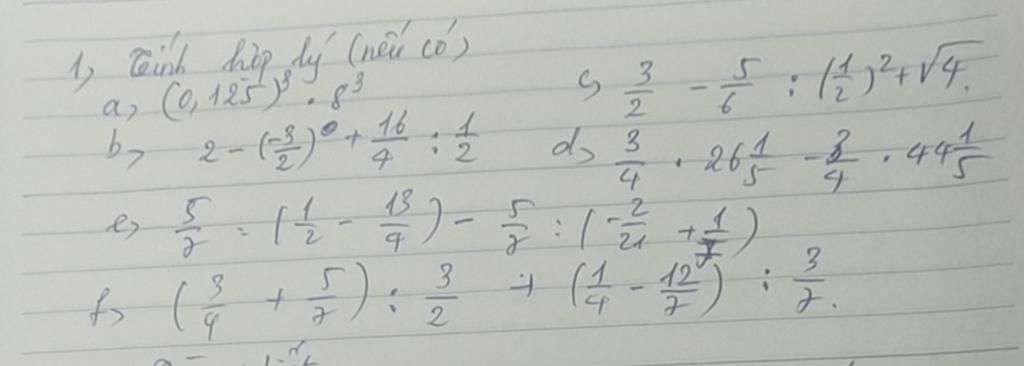 1, Tính hợp lý (nếu có)
a, (0,125)³ . 8³
c, 3/2 - 5/6 : (1/2)² + √4.
b, 2 - (-3/2)⁰ + 16/4 : 1/2
d, 3/4 . 26 1/5 - 3/4 . 44 1/5
e, 5/7 : (1/2 - 13/4) - 5/7 : (-2/21 + 1/7)
f, (3/4 + 5/7) : 3/2 + (1/4 - 12/7) : 3/7.